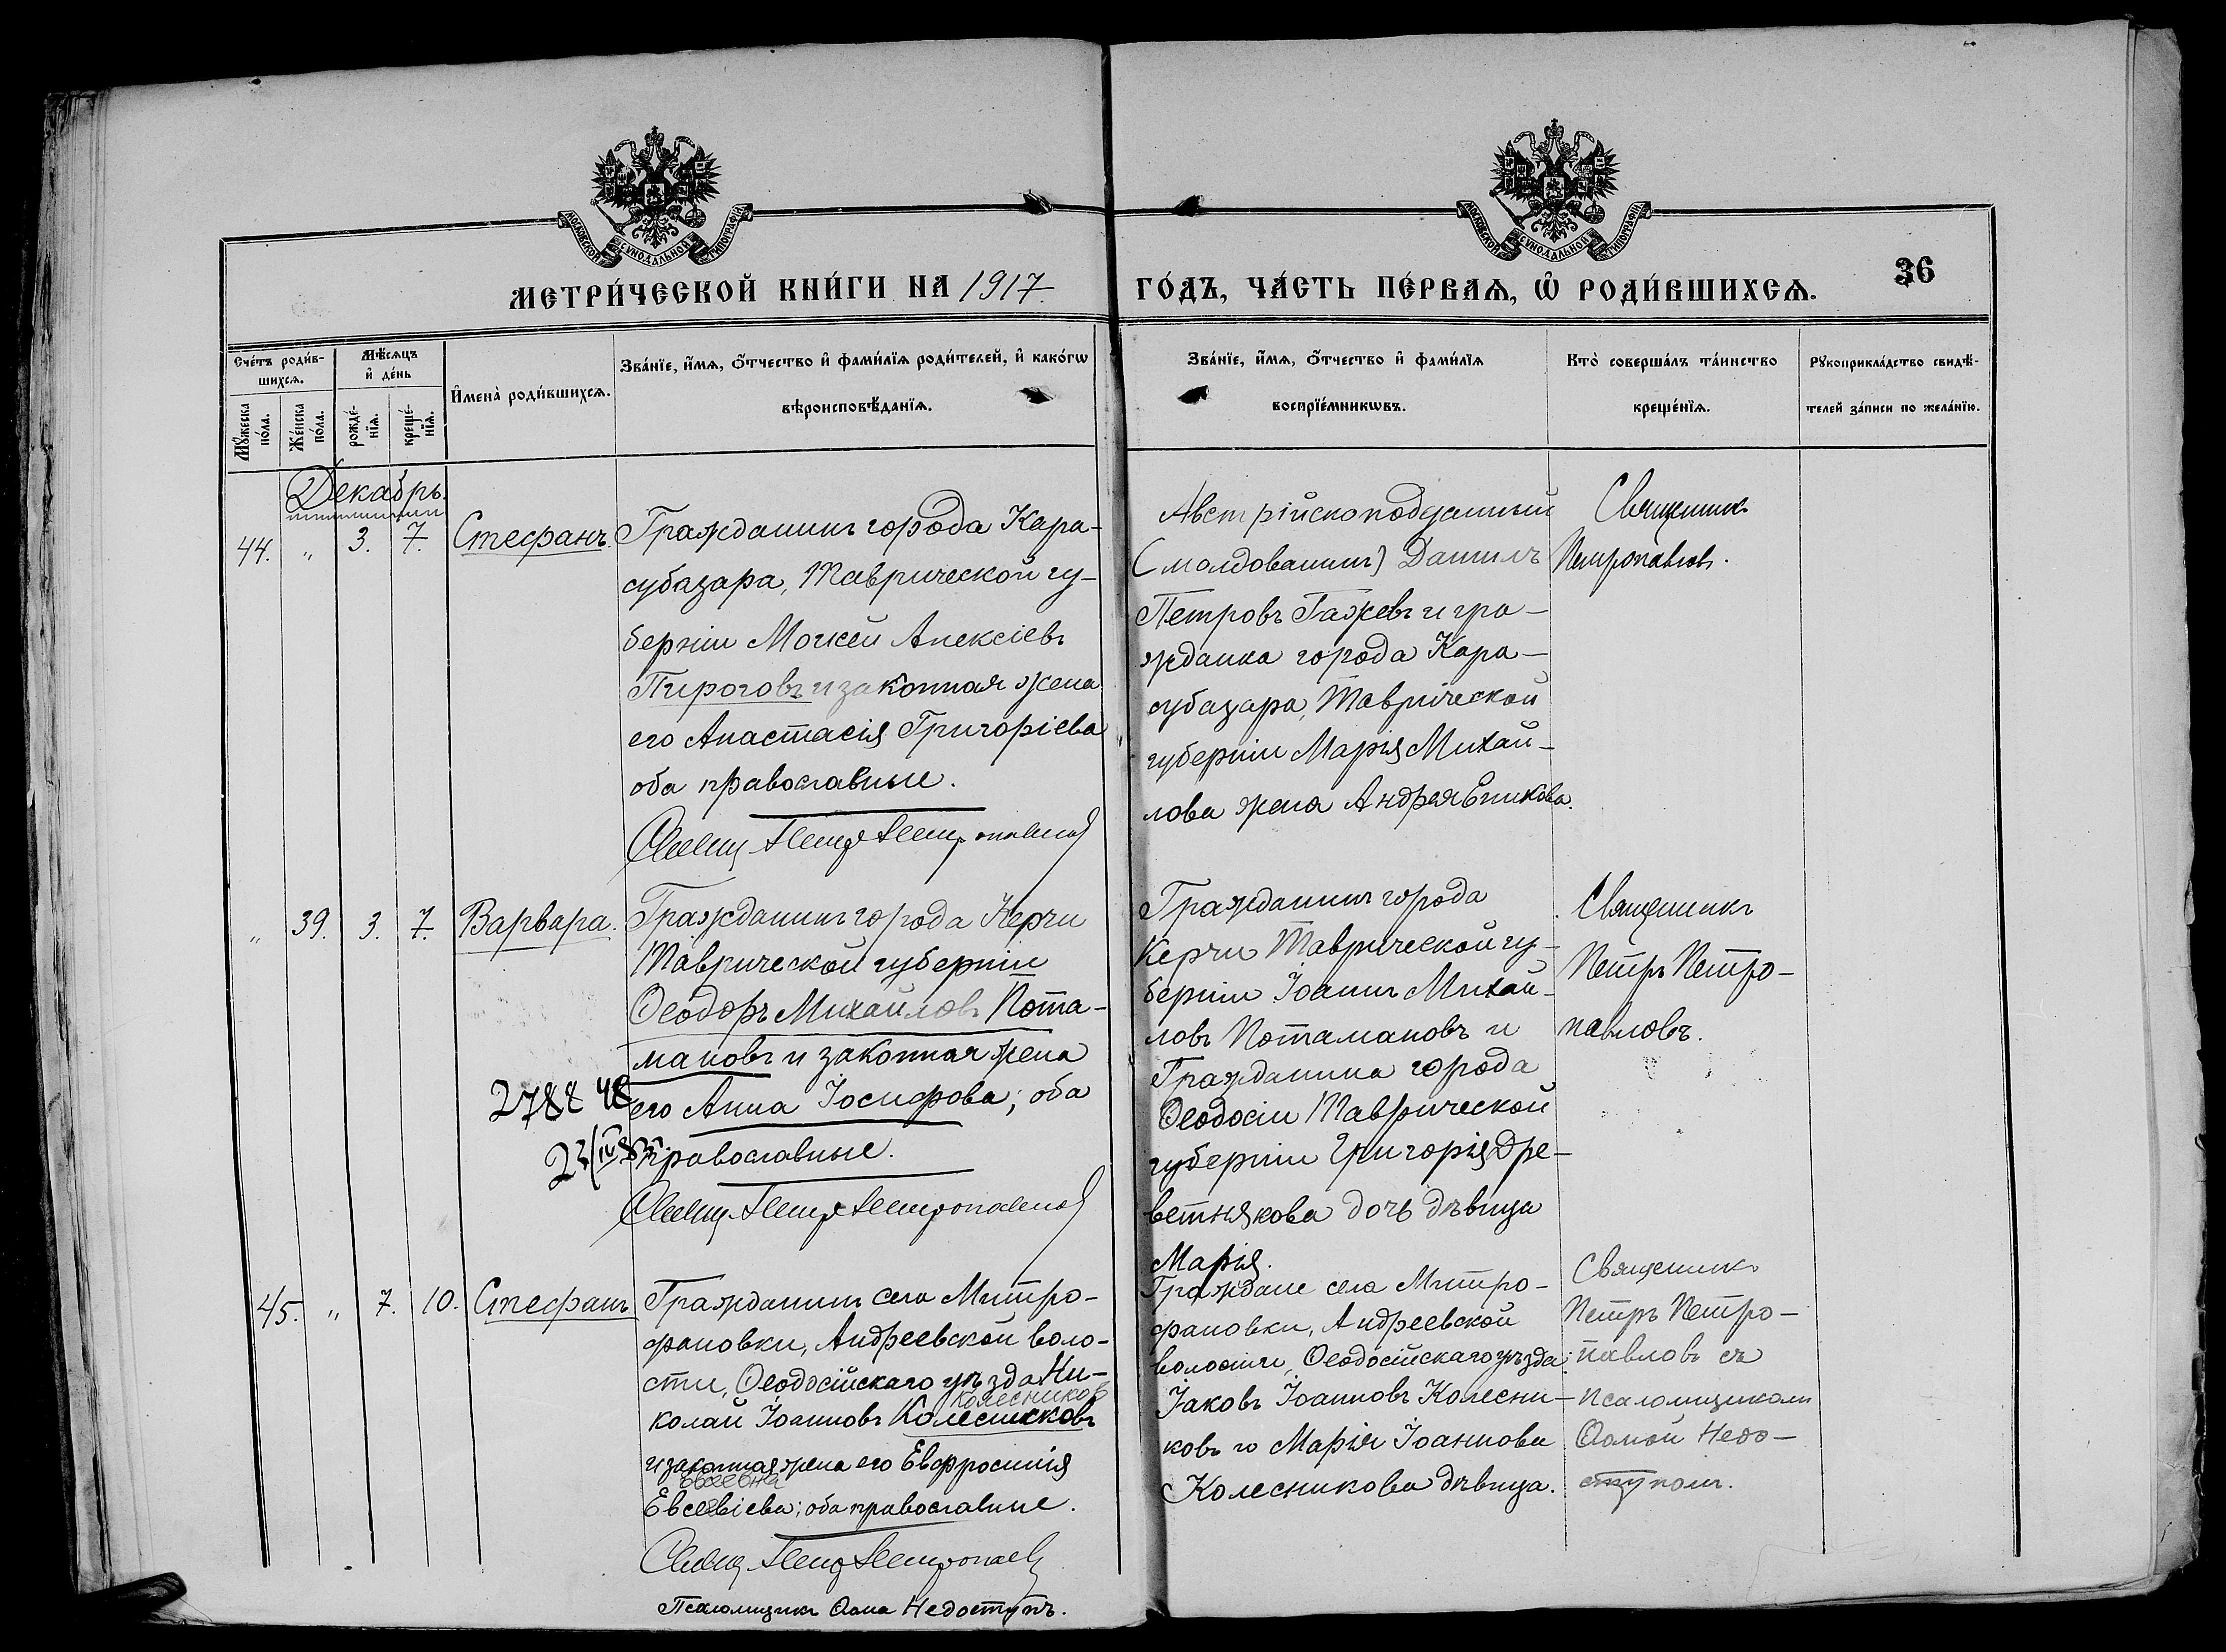 МОСКОВСКОЙ СУНОДАЛЬНОЙ ТИПОГРАФІИ
МОСКОВСКОЙ СУНОДАЛЬНОЙ ТИПОГРАФІИ
МЕТРИ́ЧЕСКОЙ КНИ́ГИ НА 1917.
ГО́ДЪ, ЧА́СТЬ ПЕ́РВАѦ, Ѡ҆ РОДИ́ВШИХСѦ.
36
Сче́тъ роди́в-
шихсѧ.
Мꙋ́жеска по́ла.
Же́нска по́ла.
Мѣ́сѧцъ
и҆ де́нь
рожде́-
нїѧ.
креще́-
нїѧ.
И҆мена̀ роди́вшихсѧ.
Зва́нїе, и҆́мѧ, ѻ҆́тчество и҆ фами́лїѧ роди́телей, и҆ како́гѡ
вѣроисповѣ́данїѧ.
Зва́нїе, и҆́мѧ, ѻ҆́тчество и҆ фами́лїѧ
воспрїе́мникѡвъ.
Кто̀ соверша́лъ та́инство
креще́нїѧ.
Рꙋкоприкла́дство свидѣ́-
телей за́писи по жела́нїю.
Декабрь.
44. „ 3. 7. Стефанъ.
Гражданинъ города Кара-
субазара, Таврической гу-
берніи Моисей Алексіевъ
Пироговъ и законная жена
его Анастасія Григоріева
оба православные.
Свящ. Петръ Петропавлов
Австрійскоподданный
(молдованинъ) Даніилъ
Петровъ Гажевъ и гра-
жданка города Кара-
субазара, Таврической
губерніи Марія Михай-
лова жена Андрея Еникова.
Священникъ
Петропавловъ.
„ 39. 3. 7. Варвара.
Гражданинъ города Керчи
Таврической губерніи
Ѳеодоръ Михайловъ Пота-
мановъ и законная жена
его Анна Іосифова; оба
православные.
Свящ. Петръ Петропавлов
2788
23/IV
Гражданинъ города
Керчи Таврической гу-
берніи Іоаннъ Михай-
ловъ Потамановъ и
Гражданина города
Ѳеодосіи Таврической
губерніи Григорія Дре-
ветнякова дочь дѣвица
Марія.
Священникъ
Петръ Петро-
павловъ.
45. „ 7. 10. Стефанъ
Гражданинъ села Митро-
фановки, Андреевской воло-
сти, Ѳеодосійскаго уѣзда Ни-
Колесников
колай Іоанновъ Колесниковъ
и законная жена его Евфросинія
Евсевіева; оба православные.
Свящ. Петръ Петропавлов
Псаломщикъ Ѳома Недоступъ.
Граждане села Митро-
фановки, Андреевской
волости, Ѳеодосійскаго уѣзда
Іаковъ Іоанновъ Колесни-
ковъ и Марія Іоаннова
Колесникова дѣвица.
Священникъ
Петръ Петро-
павловъ съ
псаломщикомъ
Ѳомой Недо-
ступомъ.